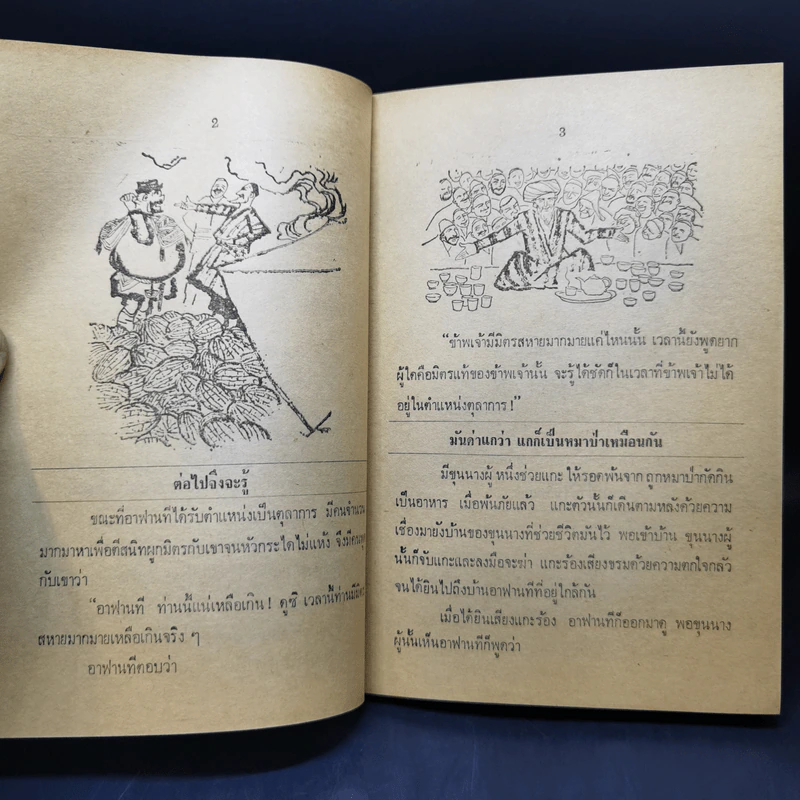 2
ต่อไปจึงจะรู้
ขณะที่อาฟานทีได้รับตำแหน่งเป็นตุลาการ มีคนจำนวน
มากมาหาเพื่อตีสนิทผูกมิตรกับเขาจนหัวกระไดไม่แห้ง จึงมีคน
กับเขาว่า
"อาฟานที ท่านนี้แน่เหลือเกิน! ดูซิ เวลานี้ท่านมีมิตร
สหายมากมายเหลือเกินจริง ๆ
อาฟานทีตอบว่า
3
"ข้าพเจ้ามีมิตรสหายมากมายแค่ไหนนั้น เวลานี้ยังพูดยาก
ผู้ใดคือมิตรแท้ของข้าพเจ้านั้น จะรู้ได้ชัดก็ในเวลาที่ข้าพเจ้าไม่ได้
อยู่ในตำแหน่งตุลาการ!"
มันด่าแกว่า แกก็เป็นหมาป่าเหมือนกัน
มีขุนนางผู้หนึ่งช่วยแกะ ให้รอดพ้นจาก ถูกหมาป่ากัดกิน
เป็นอาหาร เมื่อพ้นภัยแล้ว แกะตัวนั้นก็เดินตามหลังด้วยความ
เชื่องมายังบ้านของขุนนางที่ช่วยชีวิตมันไว้ พอเข้าบ้าน ขุนนางผู้
นั้นก็จับแกะและลงมือจะฆ่า แกะร้องเสียงขรมด้วยความตกใจกลัว
จนได้ยินไปถึงบ้านอาฟานทีที่อยู่ใกล้กัน
เมื่อได้ยินเสียงแกะร้อง อาฟานทีก็ออกมาดู พอขุนนาง
ผู้นั้นเห็นอาฟานทีก็พูดว่า